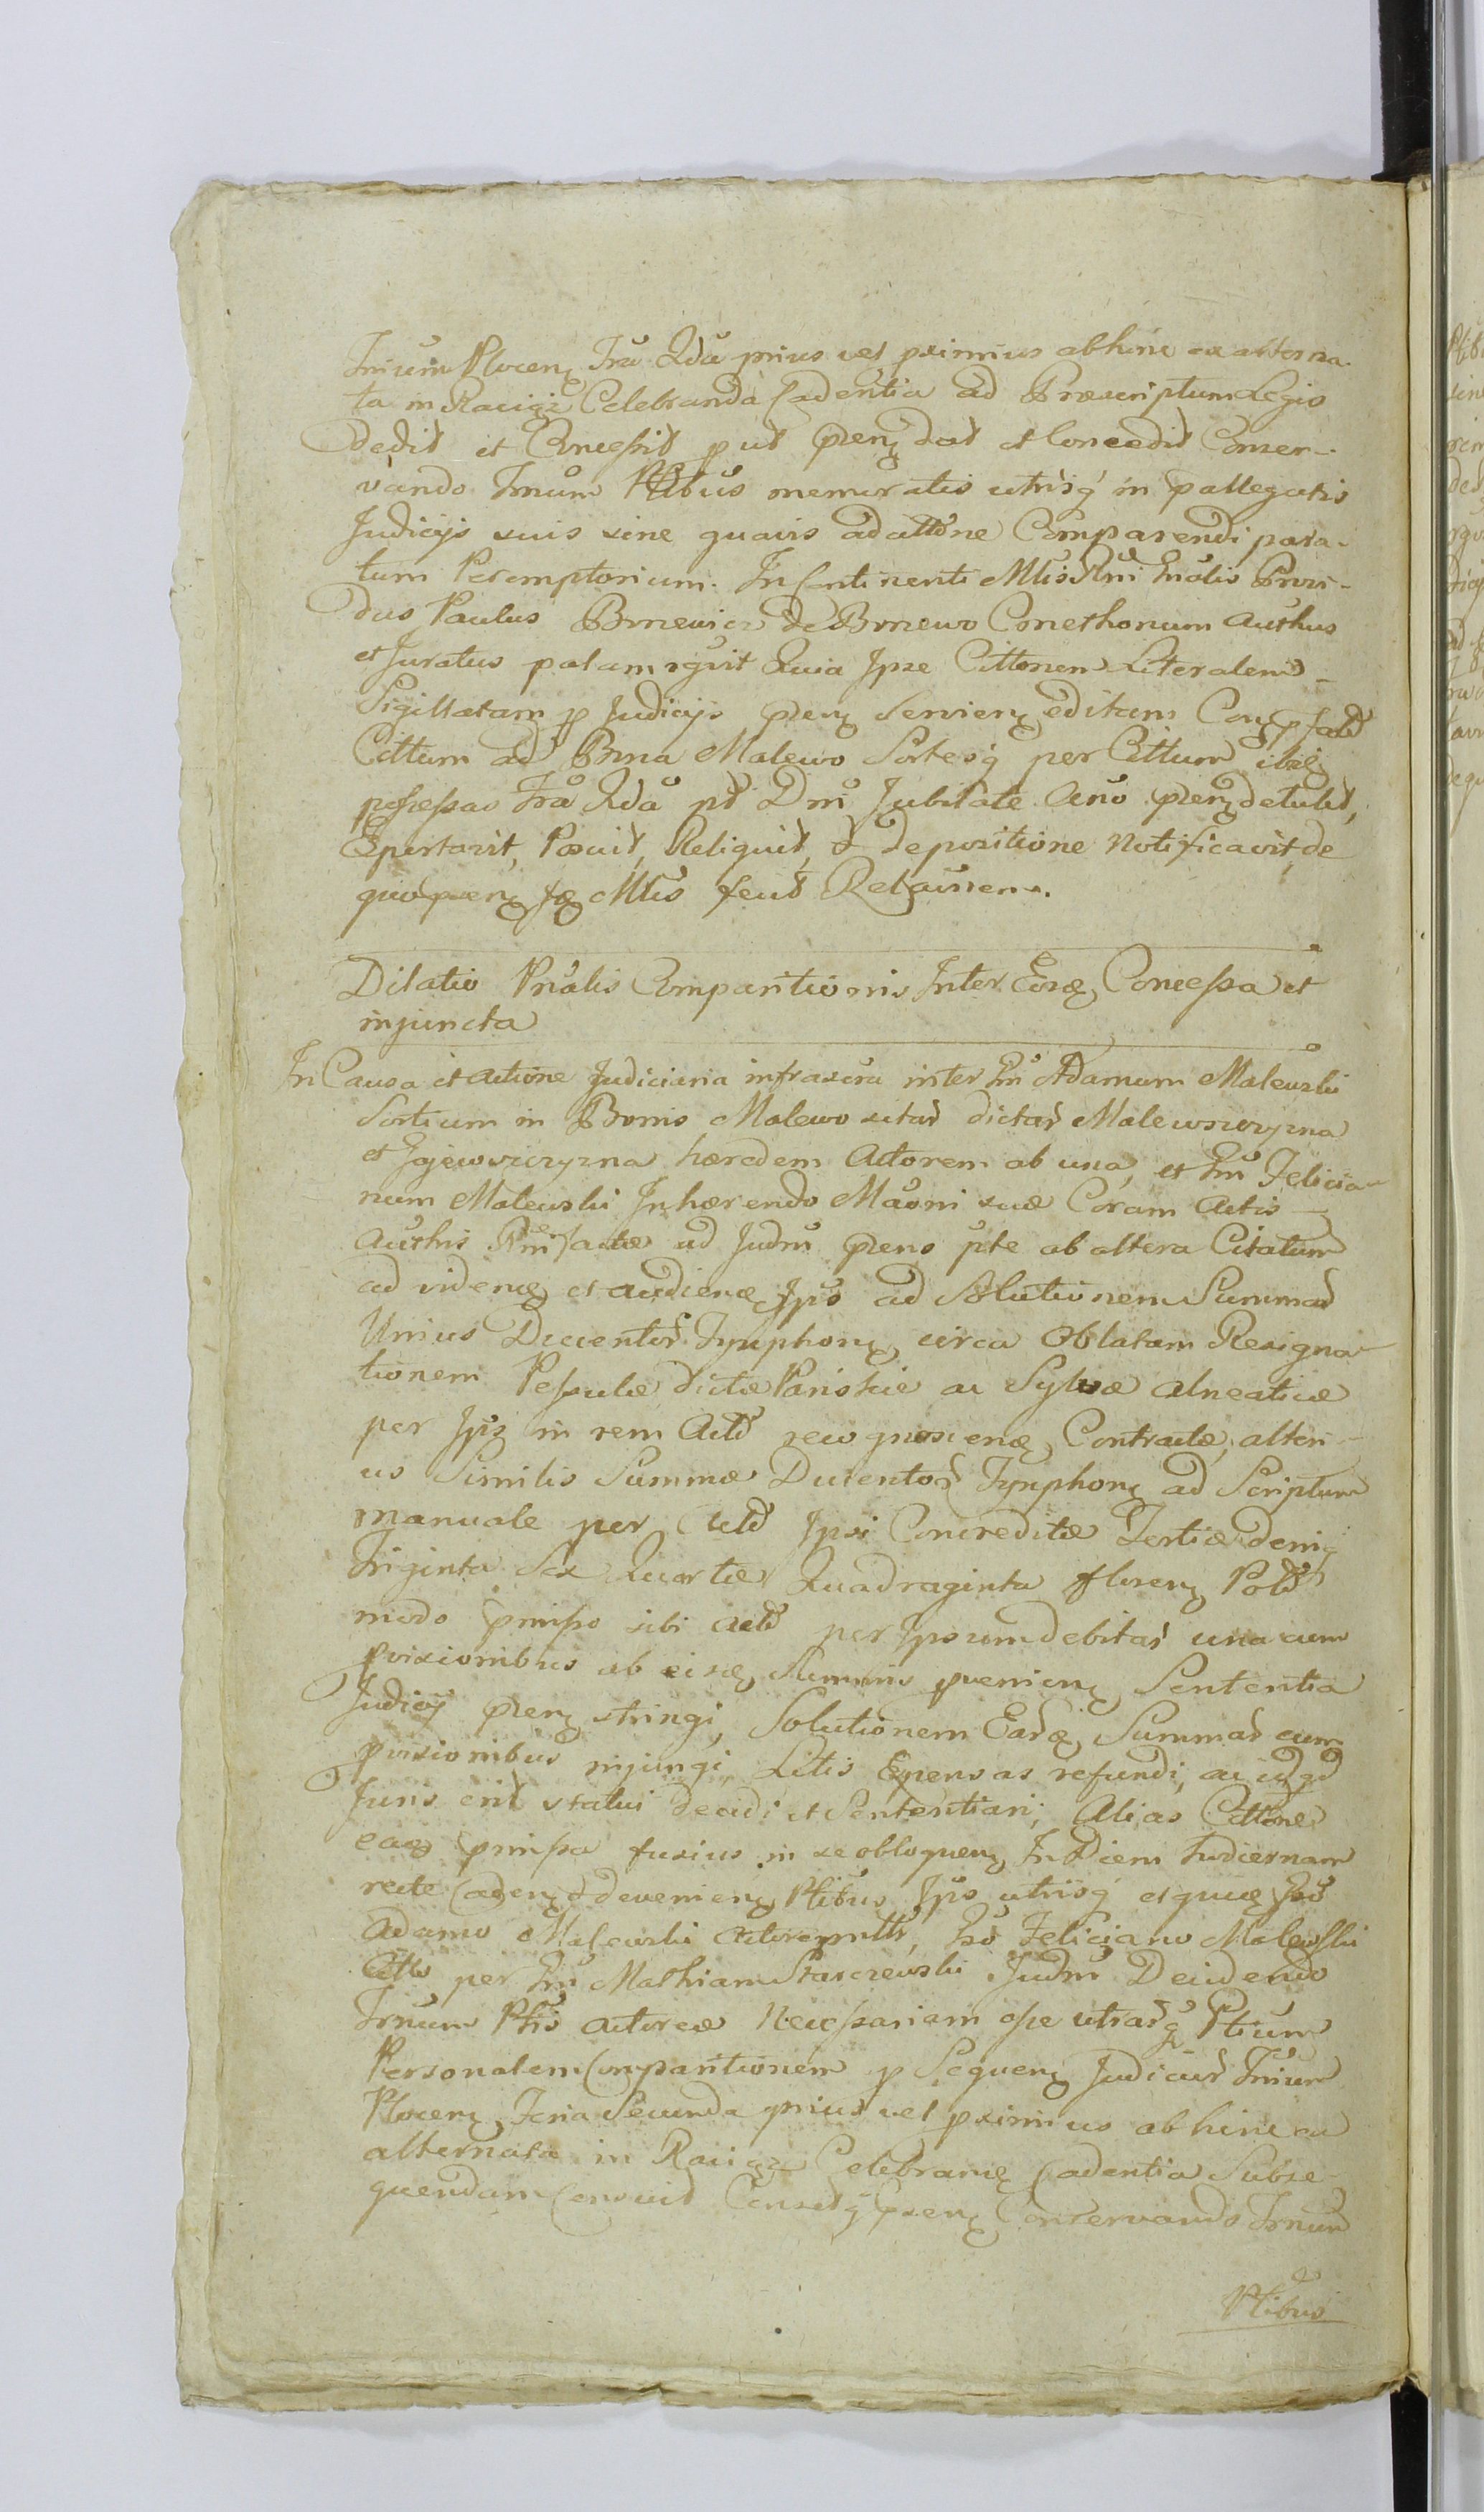 Trium Plocen. Fra 2da prius vel pximius abhinc ex alterna-
ta in Raciąż Celebranda Cadentia ad Præscriptum Legis
dedit et Concessit put pnen. dat et Concedit Conser-
vando Trnum Ptibus memoratis utrisq in pallegatis
Judicijs suis sine quavis adcittone Comparendi para-
tum Peremptorium. In Continenti Mtis Rni Gnalis Provi-
dus Paulus de Comethonum Authus
et Juratus palam rgvit Quia Ipse Cittonem Literalem
Sigillatam p Judicijs pnen. Servien. editam
Cittum ad Bona Malewo Sortesq per Cittum ibid.
possessas Fra 2da pt Dni Jubilate Ano pnen. detulit,
Eportavit, Posuit, Reliquit, et depositione notificavit, de
quo pnen. Mtis fecit Relaonem.
Dilatio Pnalis Comparitionis Inter Eosd. Concessa et
injuncta
In Causa et actione Judiciaria infrascra inter Gm Adamum Malewski
Sortium in Bonis Malewo sitar dictar Malewszczyzna
et Gajewszczyzna hæredem Actorem ab una, et Gm Felicia-
num Malewski Inhærendo Maoni suæ Coram Actis
Authis factæ ad Judm pnens pte ab altera Citatum
ad videnm et audienm Ipso ad Solutionem Summar
Unius Ducentor Tynphon. circa Oblatam Resigna-
tionem Pessulæ dictæ Pańskie ac Sylvæ alneaticæ
per Ips in rem Actr recognoscenm Contractæ, alteri-
us Similis Summæ Ducentor Tynphon. ad Scriptum
manuale per Actr Ipsi Concreditæ Tertiæ deniq
Triginta Sex Quartæ Quadraginta floren. Polr
modo pmisso sibi Actr per Ipsum debitar una cum
pvisionibus ab eisd. Summis pvenien. Sententia
Judicij pnen. stringi, Solutionem Eard. Summar cum
pvisionibus injungi, Litis Expensas refundi, ac id qd
Juris erit statui decidi et Sententiari; Alias Cittone
ead. pmissa fusius in se obloquen. In Diem hodiernam
recte Caden. et devenien. Ptibus Ips utrisq et quæ Gso
Adamo Malewski Actore pntte, Gso Feliciano Malewski
Citto per Gm Mathiam Starczewski Judm Decidendo
Trnum Ptis actoreæ Necessariam esse utrarq Ptium
Personalem Comparitionem p Sequen. Judicior Trium
Plocen. Feria Secunda prius vel pximius abhinc ex
alternata in Raciąż Celebranm Cadentia Subse-
quendam Censuit Censetq pnen. Conservando Trnum
Ptibus